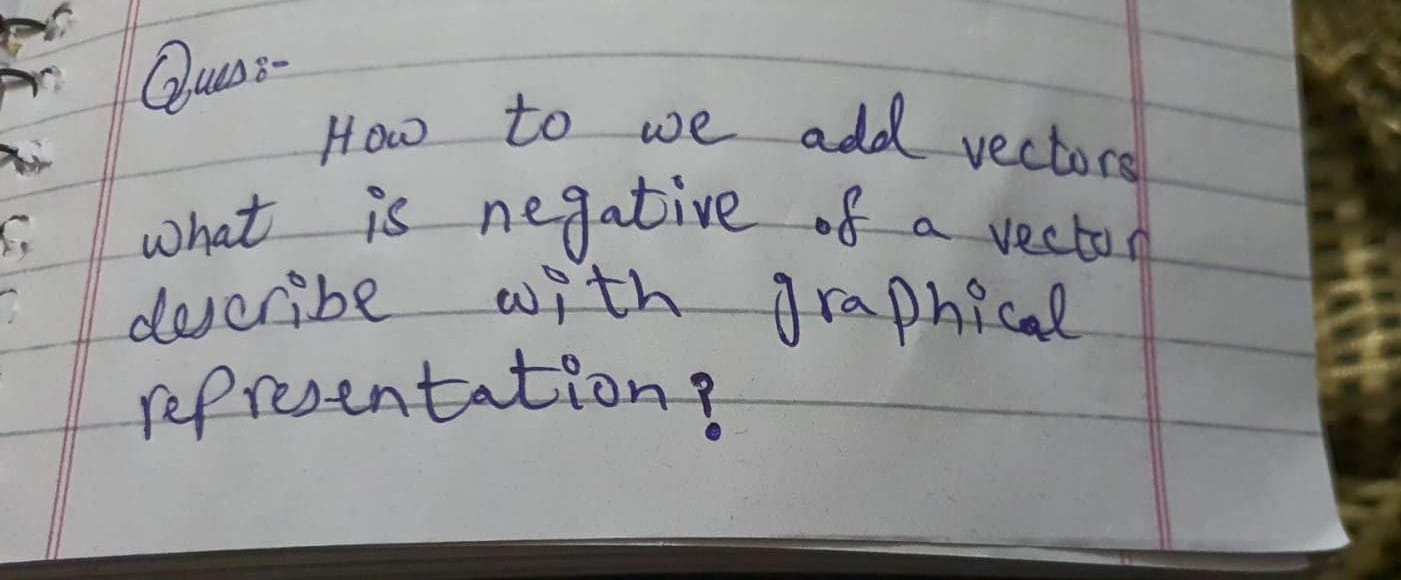 Ques:-
How to we add vectors
what is negative of a vector
describe with graphical
representation?